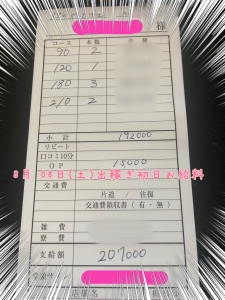 様
コース 本数 金額
90 2
120 1
180 3
210 2
小計 192000
リピート
口コミ10分
OP 15000
8月08日(土)出稼ぎ初日お給料
交通費
片道 / 往復
交通費領収書(有・無)
雑費
寮費
支給額 207000
店舗名